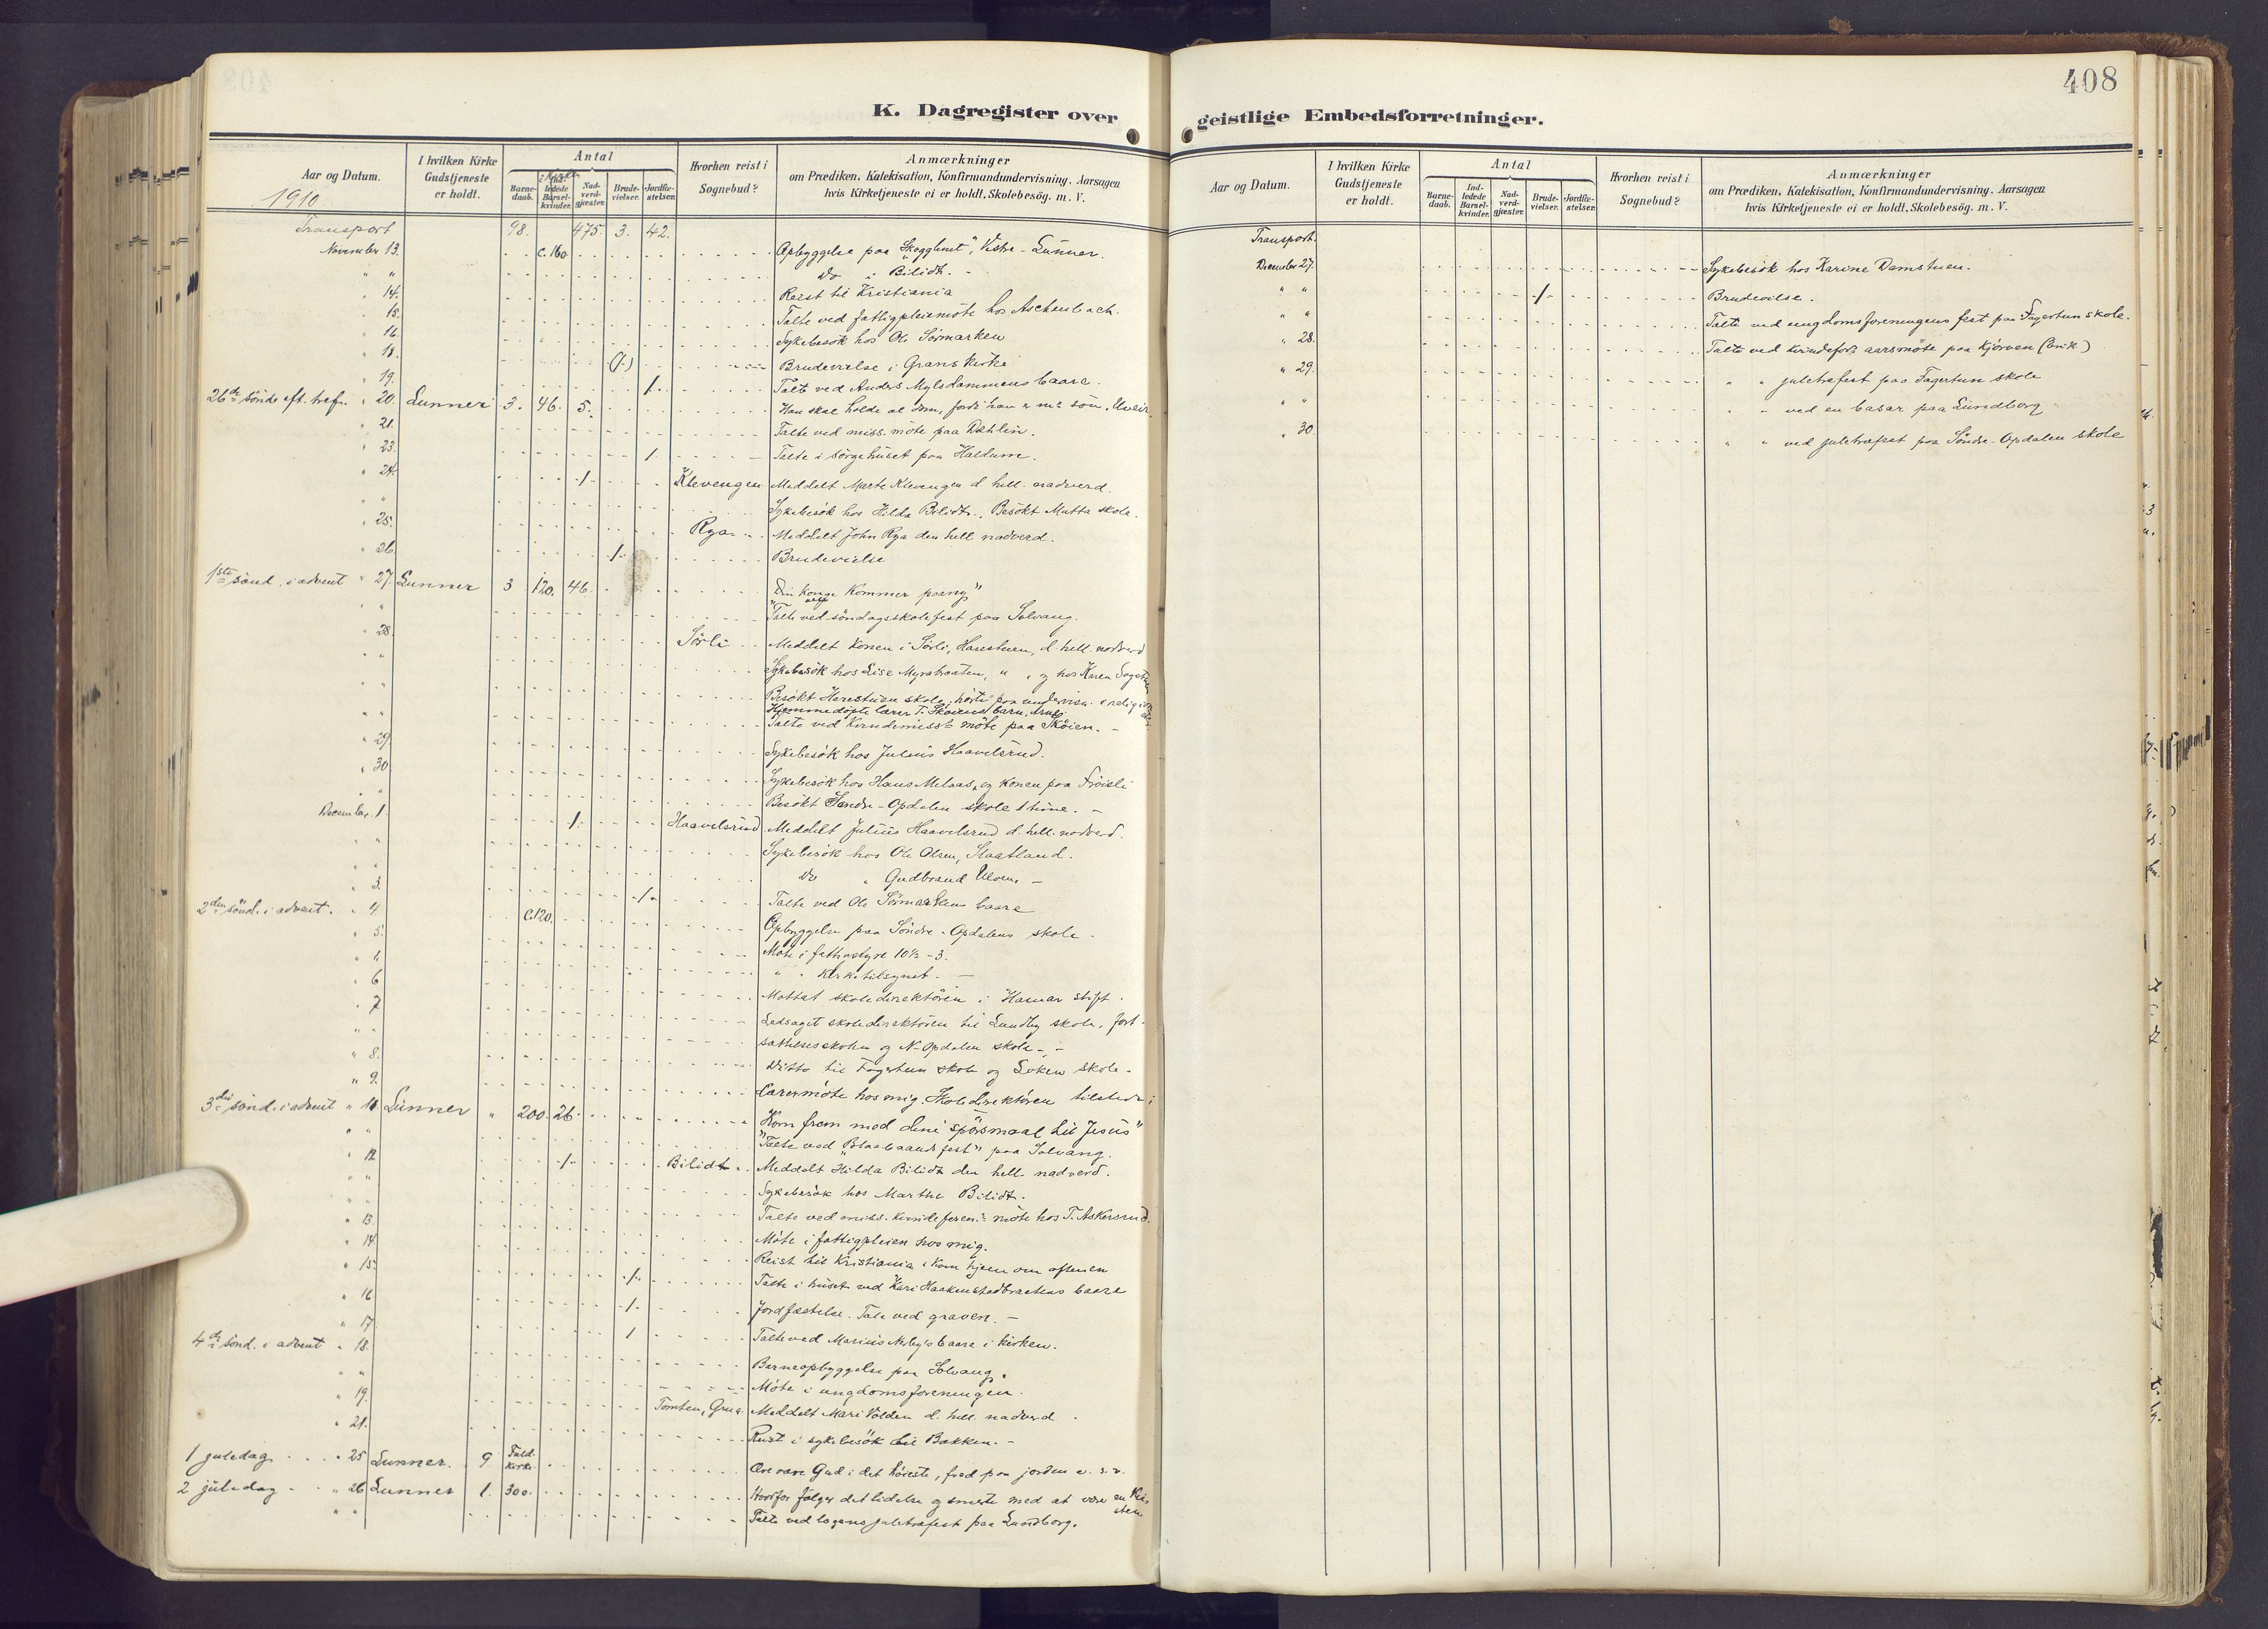 408
K. Dagregister over
Aar og Datum.
I hvilken Kirke Gudstjeneste er holdt.
Antal
Barne-daab.
Ind-ledede Barsel-kvinder.
Nad-verd-gjæster.
Brude-vielser.
Jordfæ-stelser.
Hvorhen reist i Sognebud?
Anmærkninger
om Prædiken, Katekisation, Konfirmandundervisning, Aarsagen
hvis Kirketjeneste ei er holdt, Skolebesøg, m. V.
1910
Transport 98. 475. 3. 42.
November 13. c. 160. Opbyggelse paa "Skogglimt", Vestre-Lunner.
" " do i Bilidt. -
" 14. Reist til Kristiania
" 15. Talte ved fattigpleiemøte hos Aschenbach.
" 16. Sykebesøk hos Ole Sörmarken
" 18. (1.) Brudevielse i Grans kirke
" 19. 1. Talte ved Anders Mylsdammens baare.
26de sönd. eft. tref. " 20. Lunner 3. 46. 5. Han skal holde al dom, fordi han er m.s sön. Uveir.
" 21. Talte ved miss. møte paa Dæhlin.
" 23. 1. Talte i sørgehuset paa Haldum.
" 24. 1. Klevengen Meddelt Marte Klevengen d. hell. nadverd.
" " Sykebesök hos Hilda Bilidt. Besökt Mutta skole.
" 25. Rya Meddelt John Rya den hell. nadverd.
" 26. 1. Brudevielse
1ste sönd. i advent " 27. Lunner 3 120. 46. "Din Konge kommer paany"
" " Talte ved söndagsskolefest paa Solvang.
" 28. Sörli Meddelt konen i Sörli, Harestuen, d. hell. nadverd
" " Sykebesök hos Lise Myrabraaten, " , og hos Karen
" " Besökt Harestuen skole, hörte paa undervisn. i religion
Hjemmedöpte lærer T. Sköiens barn,
" " Talte ved Kvindemiss.s møte paa Sköien. -
" 29. Sykebesök hos Julius Haavelsrud.
" 30. Sykebesök hos Hans Melaas, og konen paa Fröisli
" " Besökt Söndre-Opdalen skole 1 time. -
December. 1. 1. Haavelsrud Meddelt Julius Haavelsrud d. hell. nadverd.
" " Sykebesök hos Ole Olsen, Staatland.
" " do " Gudbrand Ulven -
" 3. 1. Talte ved Ole Sörmarkens baare
2den sönd. i advent. " 4. C. 120. Opbyggelse paa Söndre-Opdalens skole.
" 5. Møte i fattigstyre 10½ - 3.
" " " " Kirketilsynet. -
" 6 Mottat skoledirektören i Hamar stift.
" 7 Ledsaget skoledirektören til Lundby skole, fort-
" " sættelsesskolen og N-Opdalen skole. -
" 8. Ditto til Fagertun skole og Loken skole.
" 9. Lærermöte hos mig. Skoledirektören tilstede
3die sönd. i advent " 11. Lunner " 200. 26. "Kom frem med dine spörsmaal til Jesus"
" " Talte ved "Blaabaandsfest" paa Solvang.
" 12. 1. Bilidt. Meddelt Hilda Bilidt den hell. nadverd.
" " Sykebesök hos Marthe Bilidt.
" " Talte ved miss. kvindeforen.s møte hos T. Askersrud.
" 13. Møte i fattigpleien hos mig.
" 14. Reist til Kristiania. Kom hjem om aftenen
" 15. 1. Talte i huset ved Kari Haakenstadbraatens baare
" 16 1. Jordfæstelse. Tale ved graven. -
" 17. 1 Talte ved Marius Nesby's baare i kirken.
4de sönd. i advent " 18. Barneopbyggelse paa Solvang.
" " Møte i ungdomsforeningen.
" 19. Tomten, Grua. Meddelt Mari Volden d. hell. nadverd.
" 21. Reist i sykebesök til Bakken. -
1 juledag " 25 Lunner. 9 Fuld kirke Ære være Gud i det höieste, fred paa jorden o. s. v.
2 juledag " 26 Lunner 1. 300. Hvorfor fölger det lidelse og smerte med at være en kristen
" " Talte ved logens juletræfest paa Lundborg.
geistlige Embedsforretninger.
Aar og Datum.
I hvilken Kirke Gudstjeneste er holdt.
Antal
Barne-daab.
Ind-ledede Barsel-kvinder.
Nad-verd-gjæster.
Brude-vielser.
Jordfæ-stelser.
Hvorhen reist i Sognebud?
Anmærkninger
om Prædiken, Katekisation, Konfirmandundervisning, Aarsagen
hvis Kirketjeneste ei er holdt, Skolebesøg, m. V.
Transport.
December 27. Sykebesök hos Karine Damstuen.
" " 1. Brudevielse.
" " Talte ved ungdomsforeningens fest paa Fagertun skole.
" 28. Talte ved kvindefor.s aarsmöte paa Kjörven
" 29. " " juletræfest paa Fagertun skole
" " " - ved en basar paa Lundborg
" 30. " " ved juletræfest paa Söndre-Opdalen skole